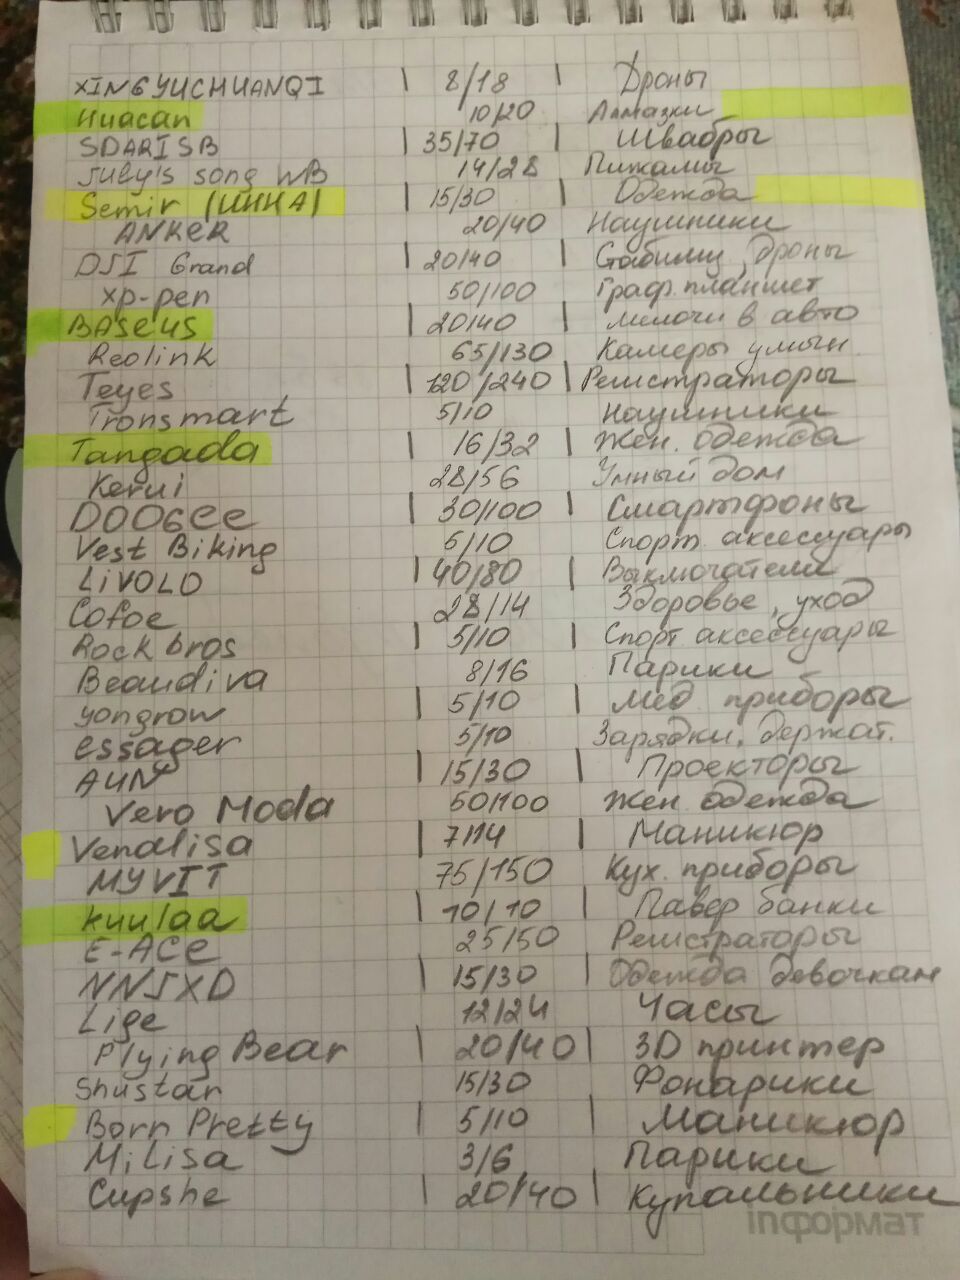 XINGYUCHUANQI | 8/18 | Дроны
Huacan 10/20 Алмазки
SDARISB | 35/70 | Швабры
July's song WB 14/28 Пижамы
Semir (ИННА) | 15/30 | Одежда
ANKER 20/40 Наушники
DJI Grand | 20/40 | Стабилиз, дроны
xp-pen 50/100 Граф. планшет
BASeus | 20/40 | мелочи в авто
Reolink 65/130 Камеры умын.
Teyes | 120/240 | Регистраторы
Tronsmart 5/10 наушники
Tangada | 16/32 | Жен. одежда
Kerui 28/56 Умный дом
DOOGee | 30/100 | Смартфоны
Vest Biking 5/10 Спорт. аксессуары
LiVOLO | 40/80 | Выключатели
Cofoe 28/14 Здоровье, уход
Rock bros | 5/10 | Спорт аксессуары
Beaudiva 8/16 Парики
yongrow | 5/10 | Мед приборы
essager 5/10 Зарядки, держат.
AUN | 15/30 | Проекторы
Vero Moda 50/100 Жен. одежда
Vendlisa | 7/14 | Маникюр
MYVIT 75/150 Кух. приборы
kuulaa | 10/10 | Павер банки
E-ACE 25/50 Регистраторы
NNJXD | 15/30 | Одежда девочкам
Lige 12/24 Часы
Plying Bear | 20/40 | 3D принтер
Shustar 15/30 Фонарики
Born Pretty | 5/10 | Маникюр
MiLisa 3/6 Парики
Cupshe | 20/40 | Купальники
inформат